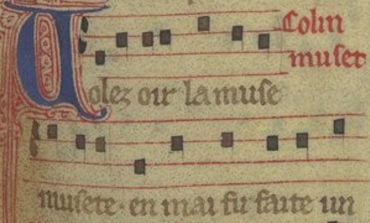 Colin
muset
Uolez oir la muse
musete · en mai fu faite un